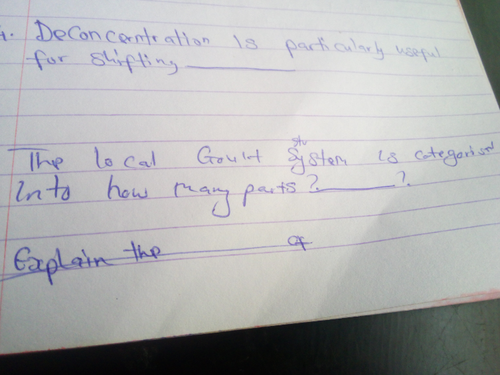 4. DeConcentration is particularly useful
for shifting ________
The local Gov't System is categorised
Into how many parts? ________?
Explain the ________ of